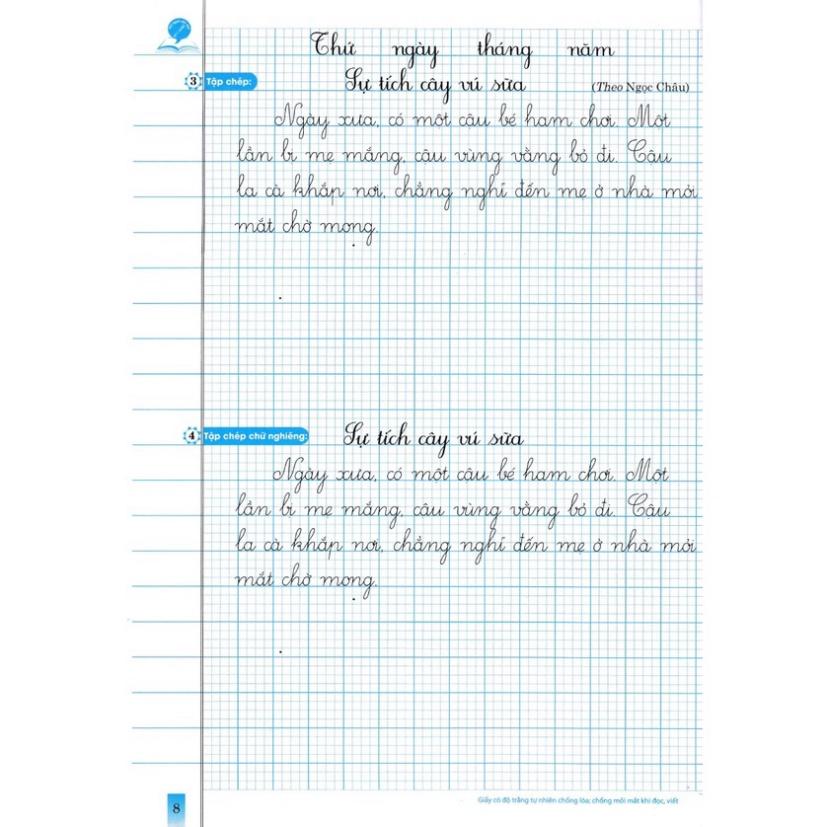 Thứ ngày tháng năm
3 Tập chép: Sự tích cây vú sữa (Theo Ngọc Châu)
Ngày xưa, có một cậu bé ham chơi. Một
lần bị mẹ mắng, cậu vùng vằng bỏ đi. Cậu
la cà khắp nơi, chẳng nghĩ đến mẹ ở nhà mỏi
mắt chờ mong.
4 Tập chép chữ nghiêng: Sự tích cây vú sữa
Ngày xưa, có một cậu bé ham chơi. Một
lần bị mẹ mắng, cậu vùng vằng bỏ đi. Cậu
la cà khắp nơi, chẳng nghĩ đến mẹ ở nhà mỏi
mắt chờ mong.
Giấy có độ trắng tự nhiên chống lóa; chống mỏi mắt khi đọc, viết
8